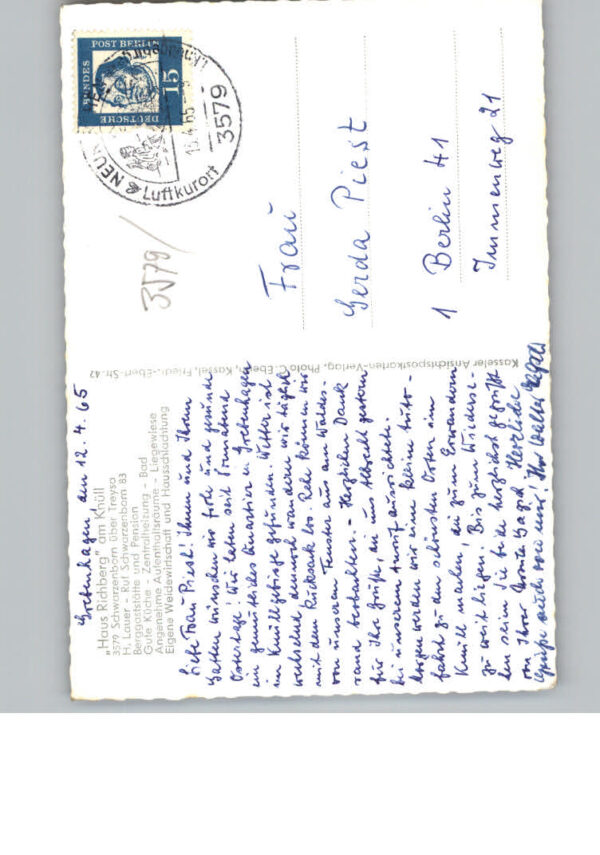 Grebenhagen, den 12. 4. 65
„Haus Richberg" am Knüll
3579 Schwarzenborn über Treysa
H. Lauer - Ruf Schwarzenborn 83
Berggaststätte und Pension
Gute Küche - Zentralheizung - Bad
Angenehme Aufenthaltsräume - Liegewiese
Eigene Weidewirtschaft und Hausschlachtung
Liebe Frau Piest! Ihnen und Ihrem
Gatten wünschen wir frohe und gesunde
Ostertage! Wir haben seit Sonnabend
ein gemütliches Quartier in Grebenhagen
im Knüllgebirge gefunden. Wetter ist
wechselnd, dennoch wandern wir täglich
mit dem Rucksack los. Rehe können wir
von unserem Fenster aus am Waldes-
rand beobachten. - Herzlichen Dank
für Ihre Grüße, die uns Albrecht gestern
bei unserem Anruf ausrichtete.
morgen werden wir eine kleine Auto-
fahrt zu den schönsten Orten im
Knüll machen, die zum Erwandern
zu weit liegen. Bis zum Wiederse-
hen seien Sie beide herzlichst gegrüßt
von Ihrer
Herzliche
Grüße auch von mir! Ihr
Kasseler Ansichtspostkarten-Verlag, Photo C. Eberth, Kassel, Friedr.-Ebert-Str. 42
DEUTSCHE BUNDES
POST BERLIN
15
Luftkurort
3579
3579/
Frau
Gerda Piest
1 Berlin 41
Immenweg 21